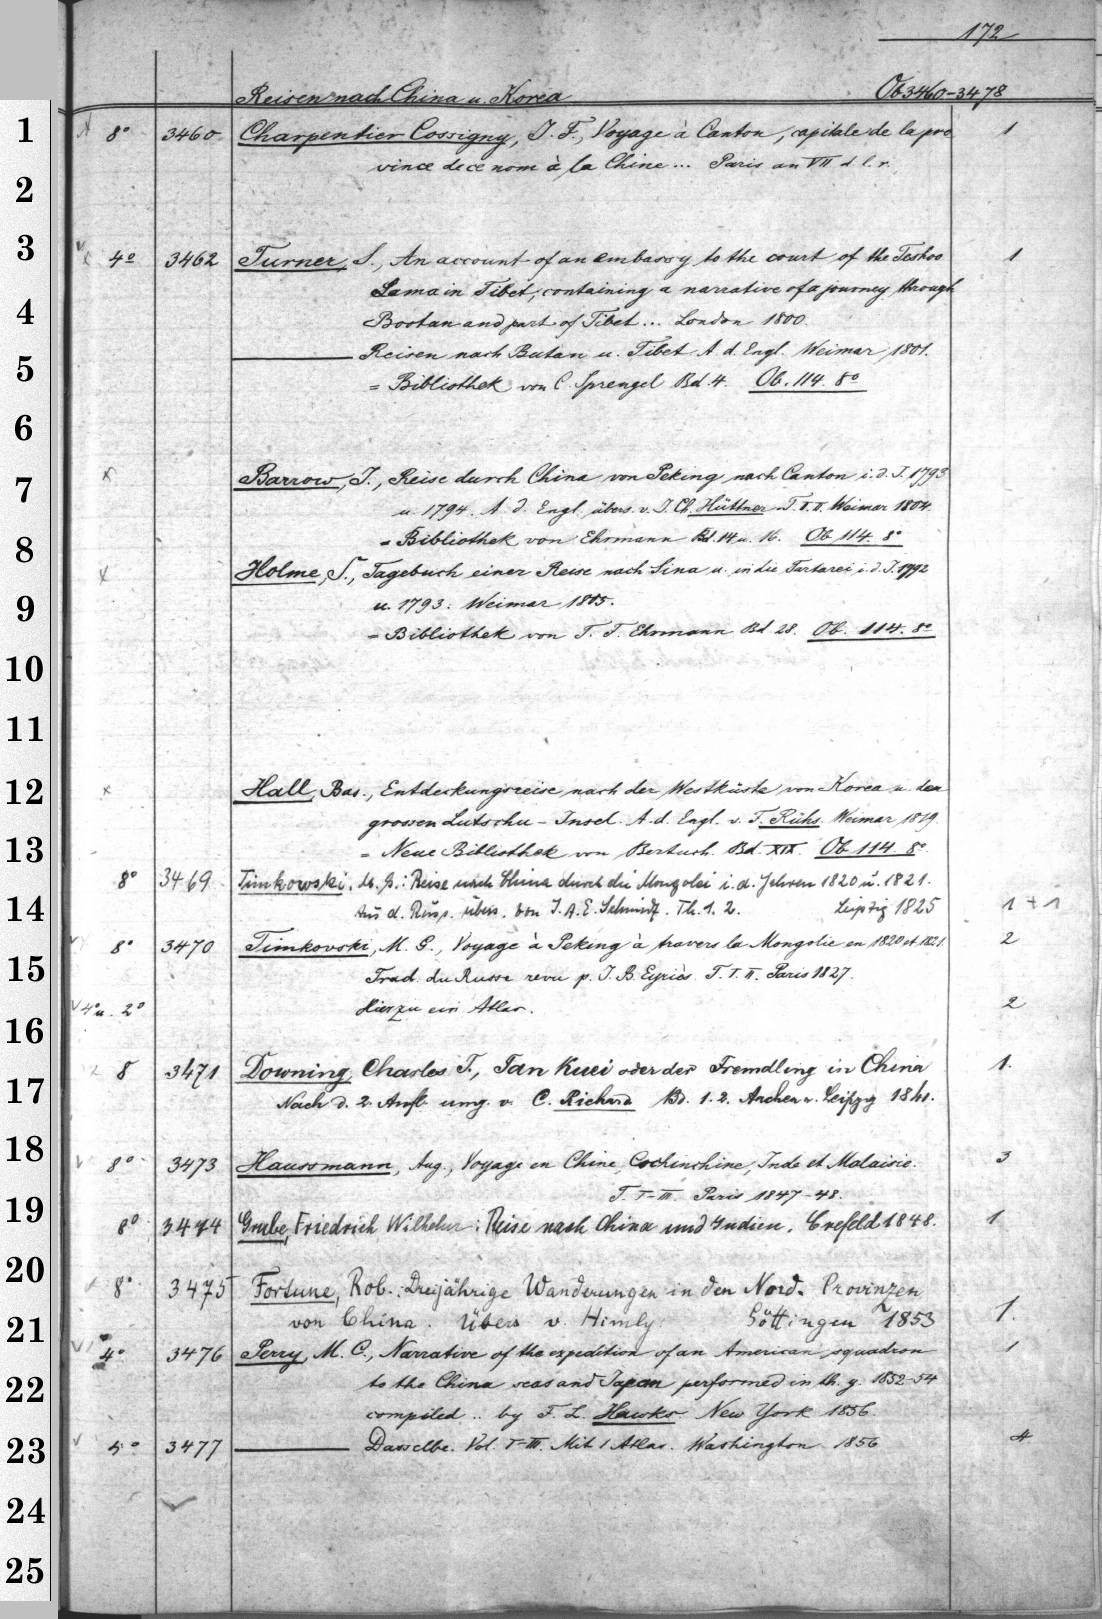 172
Reisen nach China u. Korea Ob 3460-3478
1 8° 3460 Charpentier Cossigny, J. F., Voyage à Canton, capitale de la pro 1
vince de ce nom à la Chine... Paris an VII d. l. r.
2
3 4° 3462 Turner, S., An account of an embassy to the court of the Teshoo 1
Lama in Tibet, containing a narrative of a journey through
4 Bootan and part of Tibet... London 1800.
Reisen nach Butan u. Tibet. A. d. Engl. Weimar 1801.
5 = Bibliothek von C. Sprengel Bd. 4. Ob. 114. 8°
6
7 Barrow, J., Reise durch China von Peking nach Canton i. d. J. 1793
u. 1794. A. d. Engl. übers. v. J. Ch. Hüttner T. I. II. Weimar 1804.
8 = Bibliothek von Ehrmann Bd. 14 u. 16. Ob 114. 8°
Holme, S., Tagebuch einer Reise nach Sina u. in die Tartarei i. d. J. 1792
9 u. 1793. Weimar 1805.
= Bibliothek von T. F. Ehrmann Bd 28. Ob. 114. 8°
10
11
12 Hall, Bas., Entdeckungsreise nach der Westküste von Korea u. der
grossen Lutschu-Insel. A. d. Engl. v. F. Rühs. Weimar 1819.
13 = Neue Bibliothek von Bertuch. Bd. XIX. Ob 114. 8°
8° 3469 Timkowski, M. G.: Reise nach China durch die Mongolei i. d. Jahren 1820 u. 1821.
14 Aus d. Russ. übers. von J. A. E. Schmidt. Th. 1. 2. Leipzig 1825 1+1
8° 3470 Timkovski, M. G., Voyage à Peking à travers la Mongolie en 1820 et 1821. 2
15 Trad. du Russe revu p. J. B. Eyriès. T. I. II. Paris 1827.
4° u. 2° Hierzu ein Atlas. 2
16
8 3471 Downing, Charles T., Fan Kuei oder der Fremdling in China 1.
17 Nach d. 2. Aufl. umg. v. C. Richard Bd. 1. 2. Aachen u. Leipzig 1841.
18 8° 3473 Haussmann, Aug., Voyage en Chine, Cochinchine, Inde et Malaisie. 3
T. I-III. Paris 1847-48.
19 8° 3474 Grube, Friedrich Wilhelm: Reise nach China und Indien. Crefeld 1848. 1
20 8° 3475 Fortune, Rob.: Dreijährige Wanderungen in den Nord-Provinzen
21 von China. Übers v. Himly. Göttingen 1853 1.
4° 3476 Perry, M. C., Narrative of the expedition of an American squadron 1
22 to the China seas and Japan performed in th. y. 1852-54
compiled .. by F. L. Hawks New York 1856.
23 4° 3477 Dasselbe. Vol. I-III. Mit 1 Atlas. Washington 1856 4
24
25